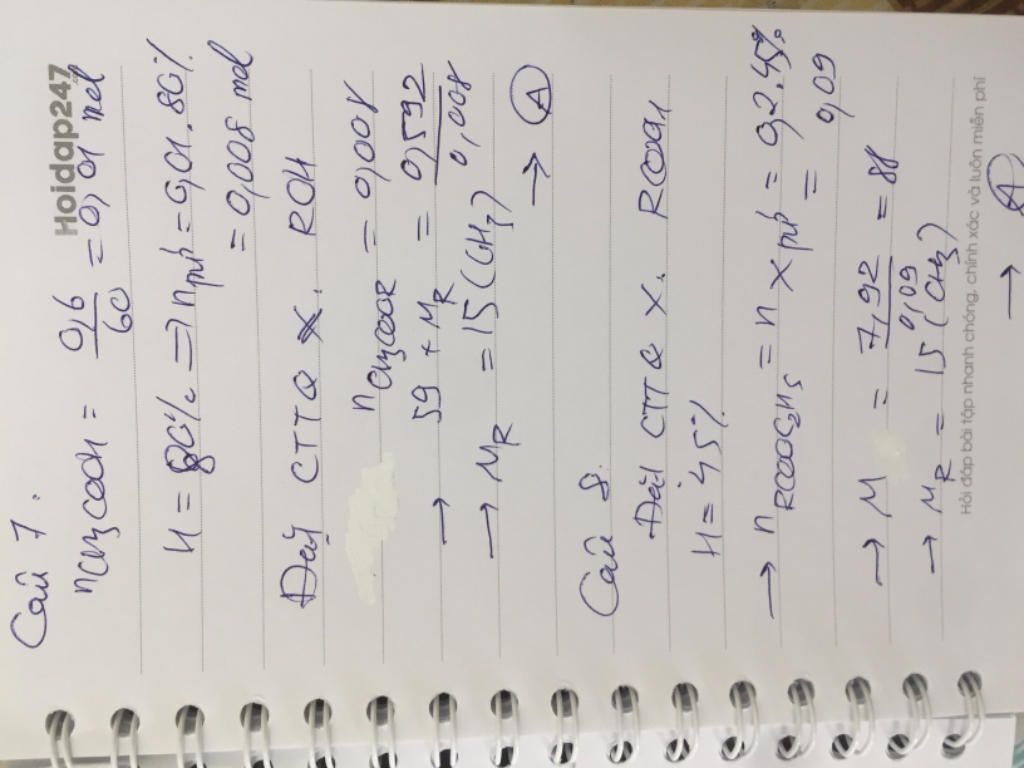 Hoidap247
.com
Câu 7 :
nCH3COOH = 0,6/60 = 0,01 mol
H = 80% => npứ = 0,01.80%
= 0,008 mol
Đặt CTTQ X. ROH
nCH3COOR = 0,008
→ 59 + MR = 0,592/0,008
→ MR = 15 (CH3)
→ A
Câu 8.
Đặt CTTQ X. RCOOH
H = 45%
→ nRCOOC2H5 = nXpứ = 0,2.45%
= 0,09
→ M = 7,92/0,09 = 88
→ MR = 15 (CH3)
→ A
Hỏi đáp bài tập nhanh chóng, chính xác và luôn miễn phí